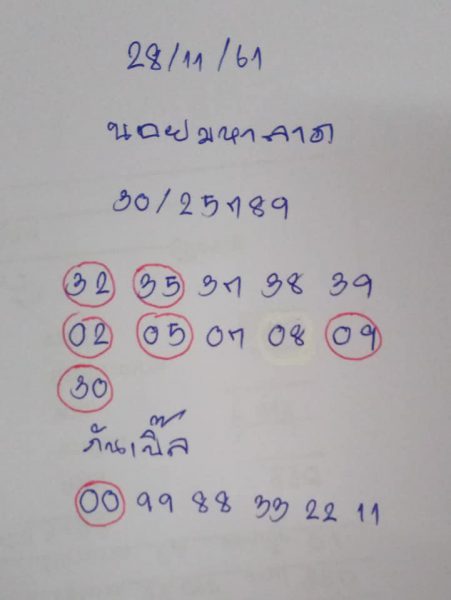 28/11/61
นอยมหาลาภ
30/25789
32 35 37 38 39
02 05 07 08 09
30
กันเบิ๊ล
00 99 88 33 22 11